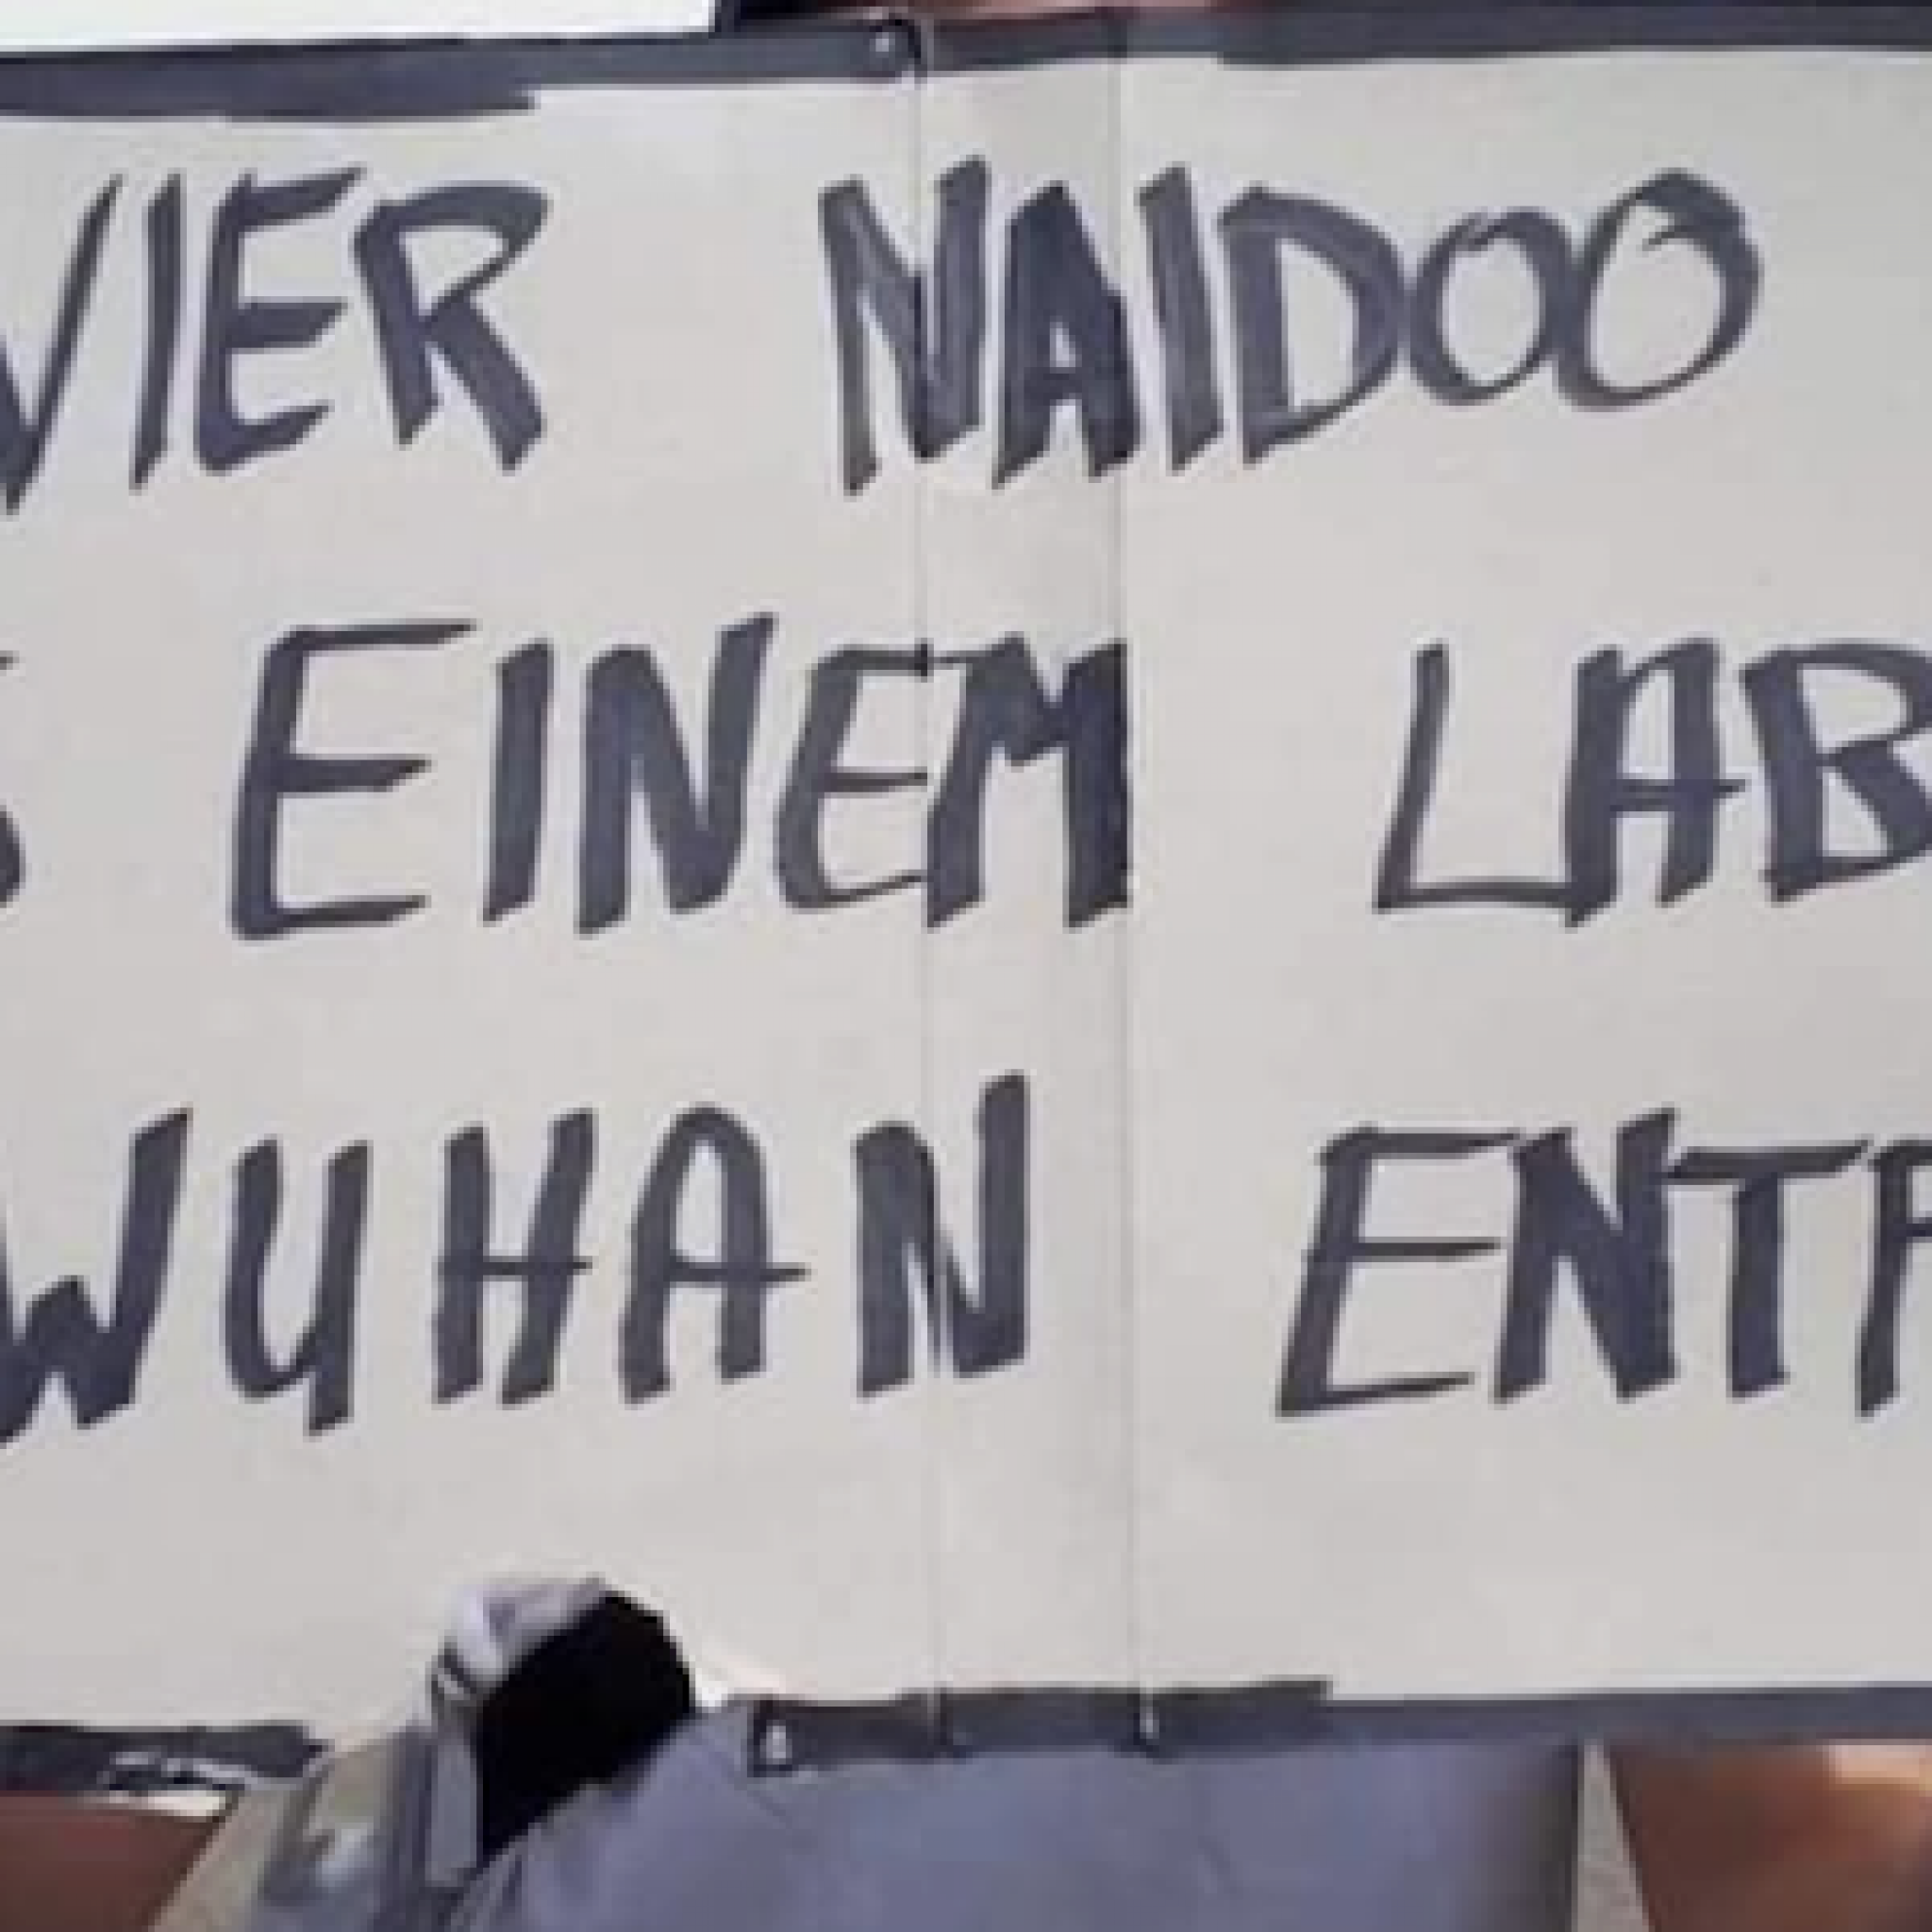 VIER NAIDOO
S EINEM LAB
WUHAN ENTF